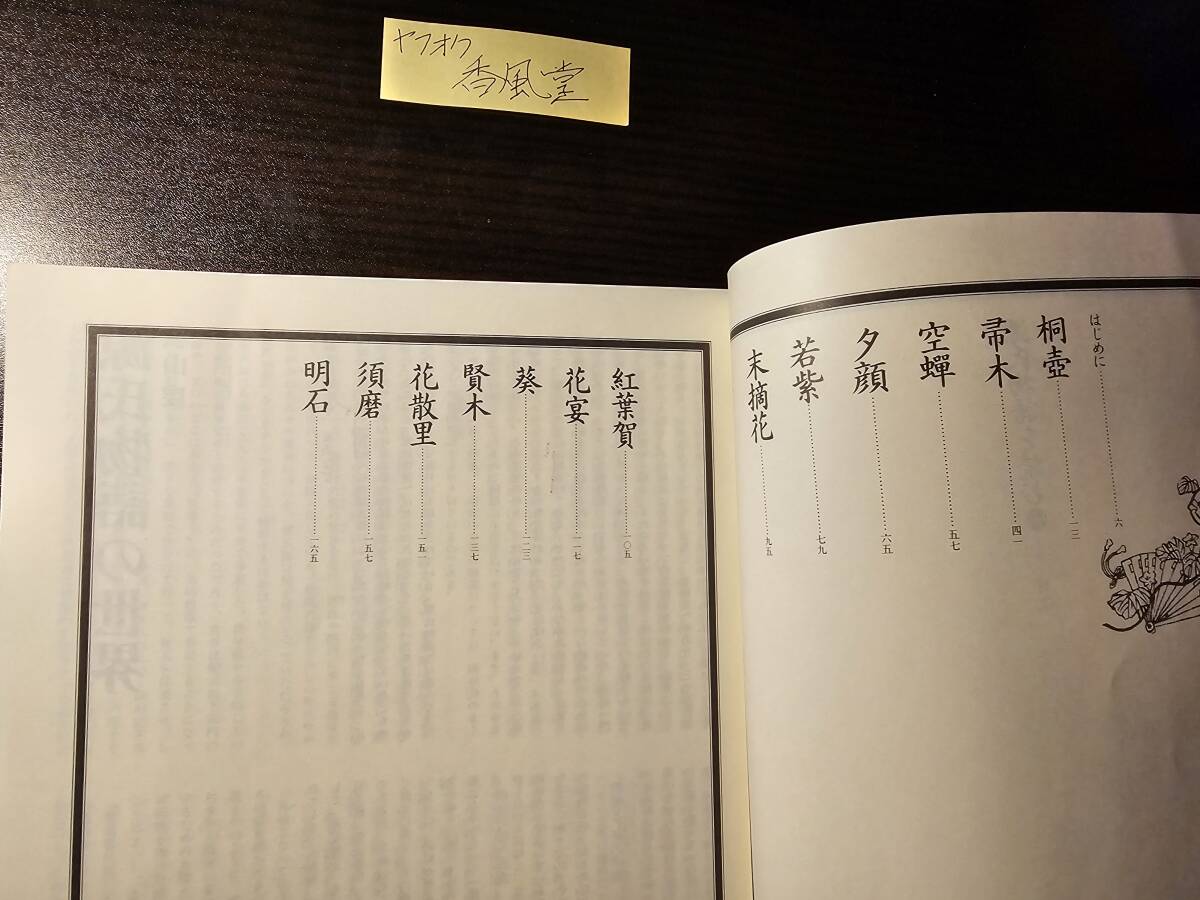 ヤフオク
香風堂
はじめに……六
桐壺……一三
帚木……四一
空蟬……五七
夕顔……六五
若紫……七九
末摘花……九五
紅葉賀……一〇五
花宴……一一七
葵……一二三
賢木……一三七
花散里……一五一
須磨……一五七
明石……一六五